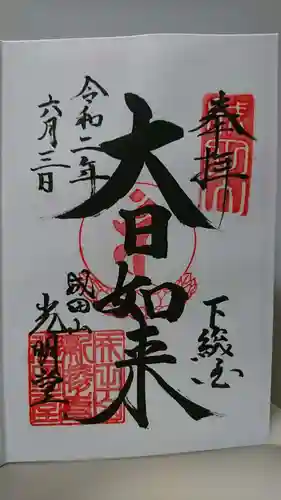 奉拝
下総国
大日如来
成田山
光明堂
令和二年
六月三日